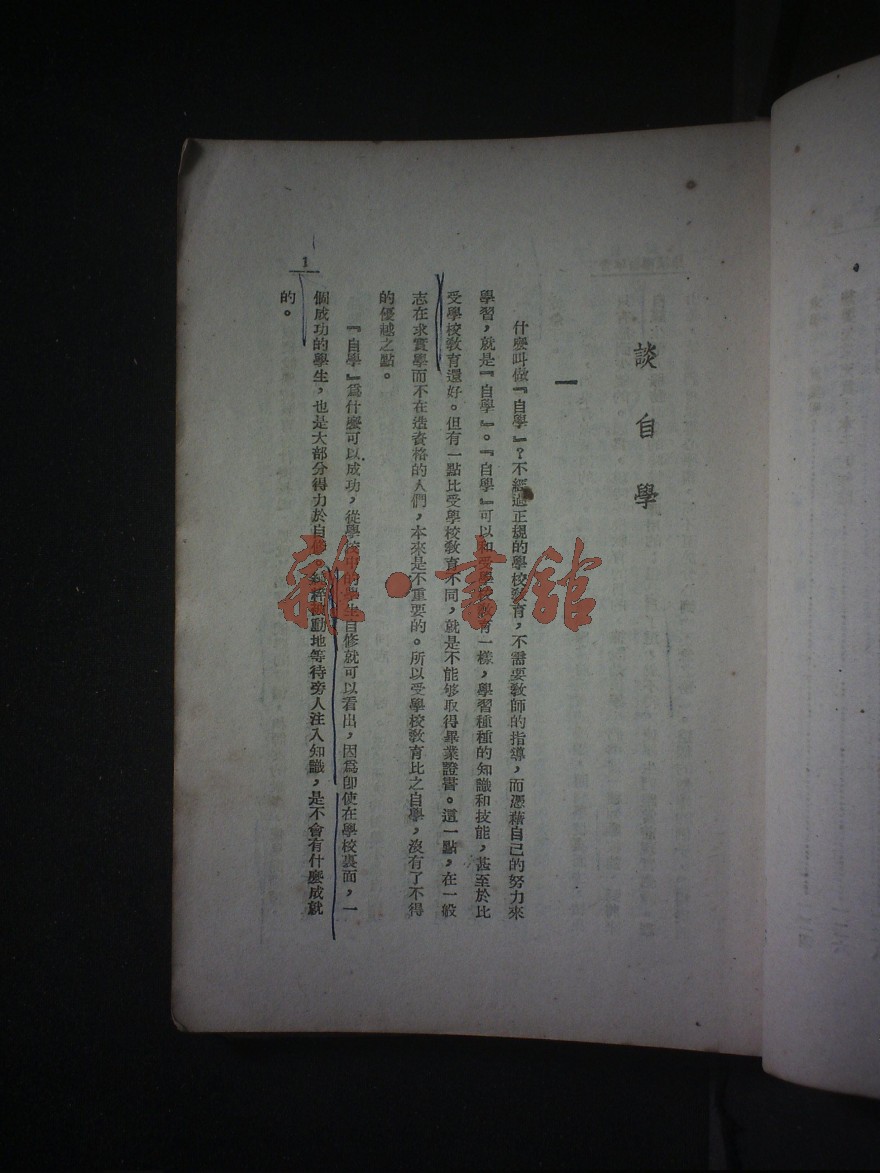 談自學
一
什麼叫做『自學』？不經過正規的學校教育，不需要教師的指導，而憑藉自己的努力來
學習，就是『自學』。『自學』可以和受學校教育一樣，學習種種的知識和技能，甚至於比
受學校教育還好。但有一點比受學校教育不同，就是不能够取得畢業證書。這一點，在一般
志在求實學而不在造資格的人們，本來是不重要的。所以受學校教育比之自學，沒有了不得
的優越之點。
『自學』爲什麼可以成功，從學校中的學生自修就可以看出，因爲即使在學校裏面，一
個成功的學生，也是大部分得力於自修，純粹被動地等待旁人注入知識，是不會有什麼成就
的。
1
雜·書館